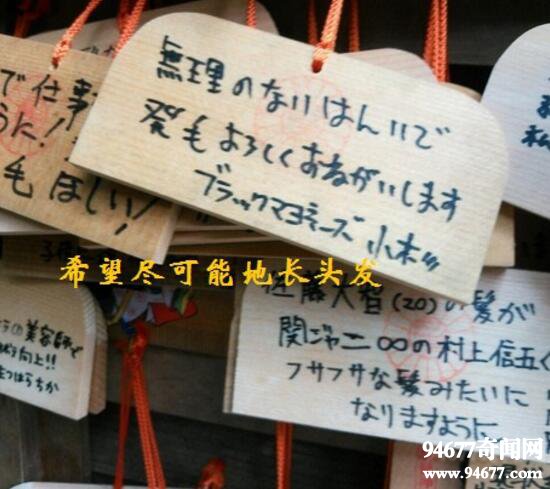 無理のないはんいで
発毛よろしくおねがいします
ブラックマヨネーズ 小杉
で仕事
うに!
毛ほしい!
松
希望尽可能地长头发
の美容師で
向上!!
佐藤大智(20)の髪が
関ジャニ∞の村上信五く
フサフサな髪みたいに
なりますように
94677奇闻网
www.94677.com